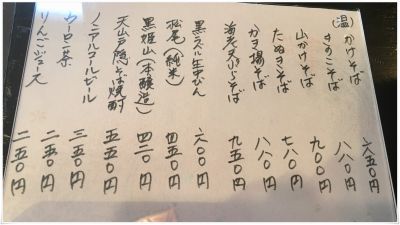 (温)かけそば 六五〇円
きのこそば 八八〇円
山かけそば 九〇〇円
たぬきそば 七八〇円
かき揚そば 八八〇円
海老天ぷらそば 九五〇円
黒ラベル生中びん 六〇〇円
松尾(純米) 四五〇円
黒姫山(本醸造) 四二〇円
天山戸隠そば焼酎 五五〇円
ノンアルコールビール 三五〇円
ウーロン茶 二五〇円
りんごジュース 二五〇円